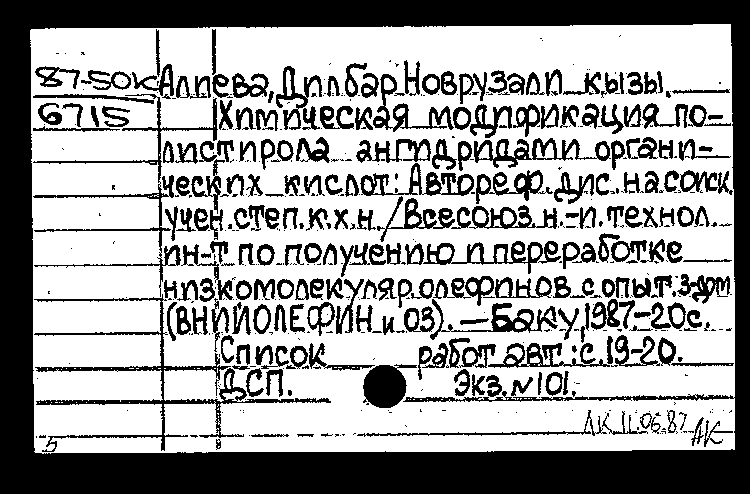 87-50к Алиева, Дилбар Новрузали кызы.
6715 Химическая модификация по-
листирола ангидридами органи-
ческих кислот: Автореф. дис. на соиск.
учен. степ. к.х.н. / Всесоюз. н.-и. технол.
ин-т по получению и переработке
низкомолекуляр. олефинов с опыт. з-дом
(ВНИИОЛЕФИН и ОЗ). — Баку, 1987. - 20 с.
Список работ авт.: с. 19-20.
ДСП. Экз. № 101.
ЛК 11.06.87 ЛК
5